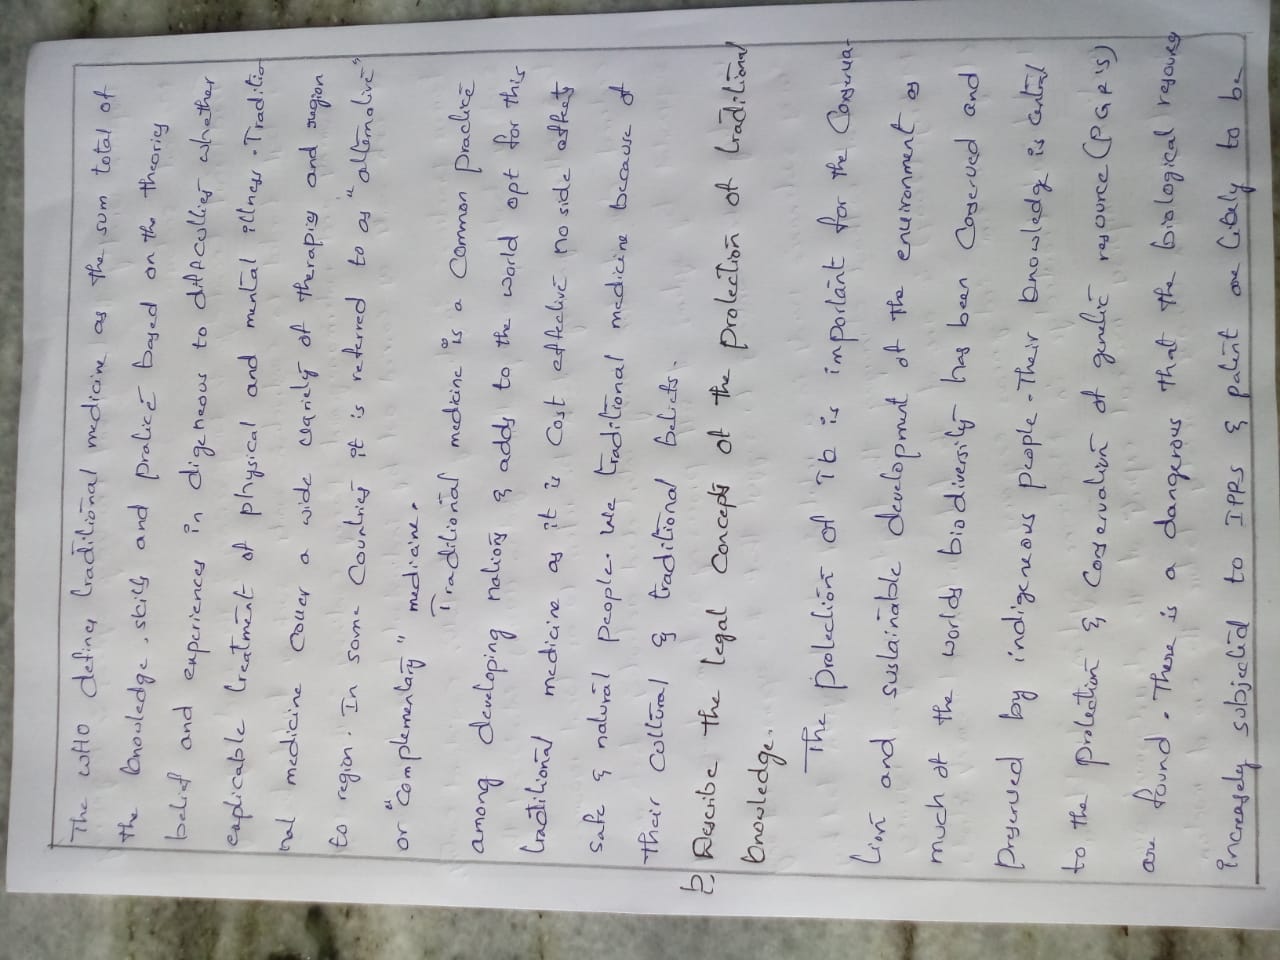 The WHO defines traditional medicine as the sum total of
the knowledge, skills and pratice based on the theories
belief and experiences in digeneous to difficulties whether
explicable treatment of physical and mental illness. Traditio-
nal medicine cover a wide variety of therapies and region
to region. In some countries it is referred to as "alternative"
or "complementary" medicine.
Traditional medicine is a common practice
among developing nations & adds to the world opt for this
traditional medicine as it is cost effective no side effects
safe & natural people. We traditional medicine because of
their cultural & traditional beliefs.
b, Describe the legal concepts of the protection of traditional
knowledge.
The protection of Tk is important for the conserva-
tion and sustainable development of the environment as
much of the worlds biodiversity has been conserved and
preserved by indigeneous people. Their knowledge is central
to the protection & conservation of genetic resource (PGR's)
are found. There is a dangerous that the biological resours
increasely subjected to IPRS & patant are likely to be